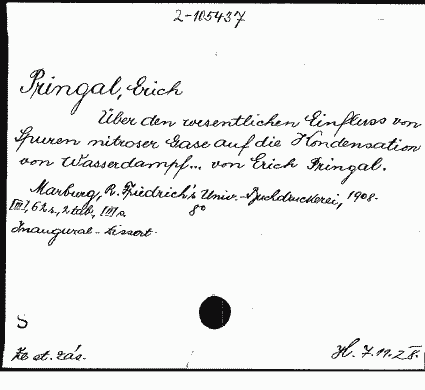 2-105437
Pringal, Erich
Über den wesentlichen Einfluss von
Spuren nitroser Gase auf die Kondensation
von Wasserdampf... von Erich Pringal.
Marburg, R. Friedrich's Univ.-Buchdruckerei, 1908.
[III], 62 s., 2 tab., [III] s. 8°
Inaugural-Dissert.
S
Ze st. zás.
H. 7.11.28.